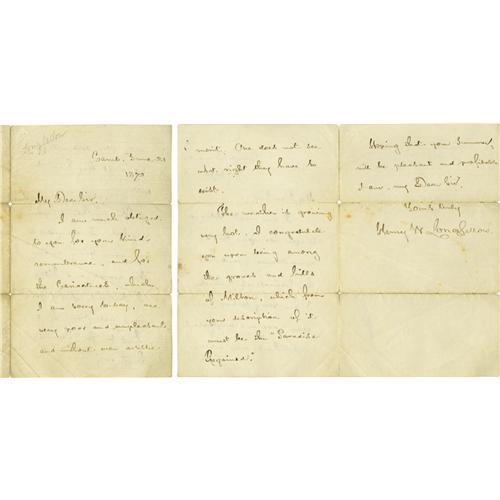 Longfellow
Camb. June 21
1870
My Dear Sir,
I am much obliged
to you for your kind
remembrance, and for
the Caricatures, which,
I am sorry to say, are
very poor and unpleasant,
and without even artistic
merit. One does not see
what right they have to
exist.
The weather is growing
very hot. I congratulate
you upon being among
the groves and hills
of Milton, which from
your description of it
must be the "Paradise
Regained."
Hoping that your Summer
will be pleasant and profitable
I am, my Dear Sir,
Yours truly
Henry W. Longfellow.